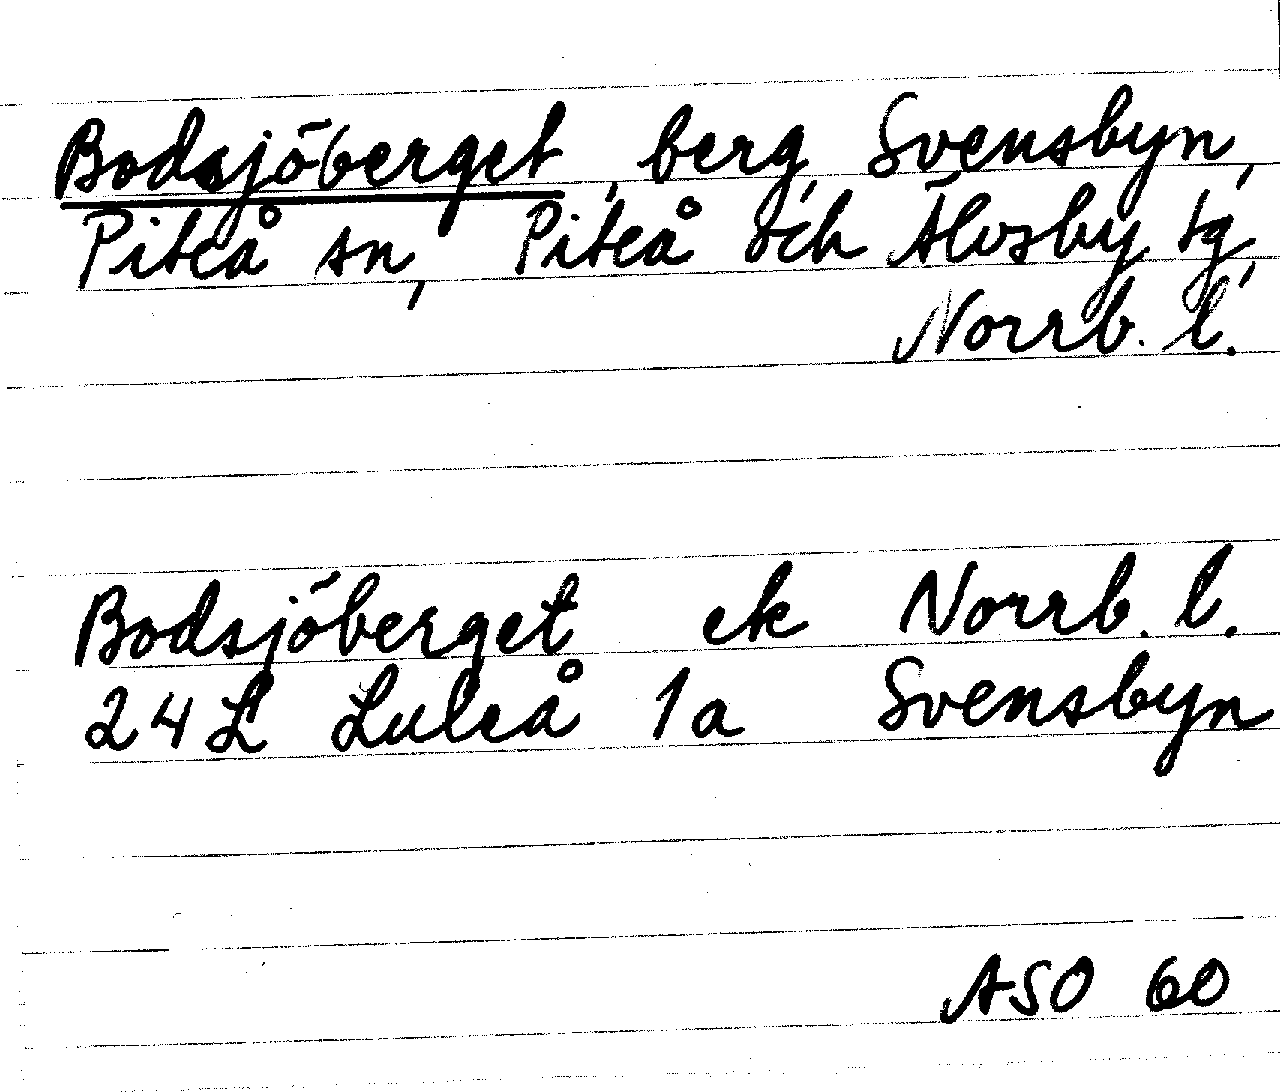 Bodsjöberget, berg, Svensbyn,
Piteå sn, Piteå och Älvsby tg,
Norrb. l.
Bodsjöberget ek Norrb. l.
24L Luleå 1a Svensbyn
ASO 60